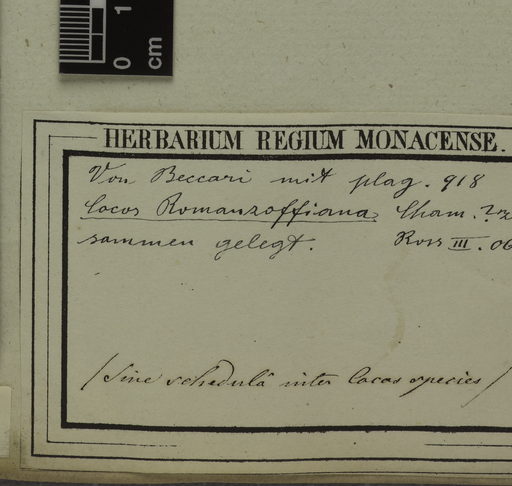 0 1
cm
HERBARIUM REGIUM MONACENSE.
Von Beccari mit plag. 918
Cocos Romanzoffiana Cham. ? zu
sammen gelegt. Ross III. 06
(Sine schedulâ inter Cocos species)